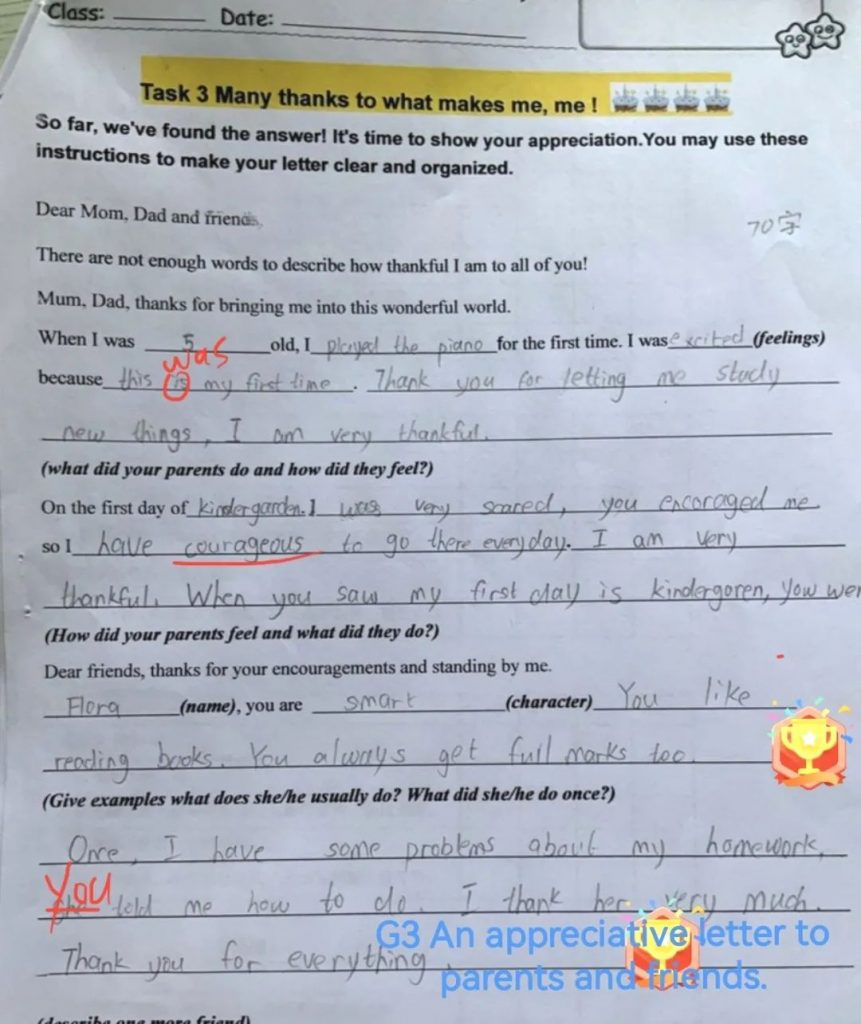 Class: Date:
Task 3 Many thanks to what makes me, me !
So far, we've found the answer! It's time to show your appreciation.You may use these
instructions to make your letter clear and organized.
Dear Mom, Dad and friends,
70字
There are not enough words to describe how thankful I am to all of you!
Mum, Dad, thanks for bringing me into this wonderful world.
When I was 5 old, I played the piano for the first time. I was excited (feelings)
was
because this is my first time. Thank you for letting me study
new things, I am very thankful.
(what did your parents do and how did they feel?)
On the first day of kindergarden. I was very scared, you encoraged me
so I have courageous to go there everyday. I am very
thankful. When you saw my first day is kindergoren, you wer
(How did your parents feel and what did they do?)
Dear friends, thanks for your encouragements and standing by me.
Flora (name), you are smart (character) You like
reading books. You always get full marks too.
(Give examples what does she/he usually do? What did she/he do once?)
Once, I have some problems about my homework,
You told me how to do. I thank her very much.
Thank you for everything.
G3 An appreciative letter to
parents and friends.
(describe one more friend)